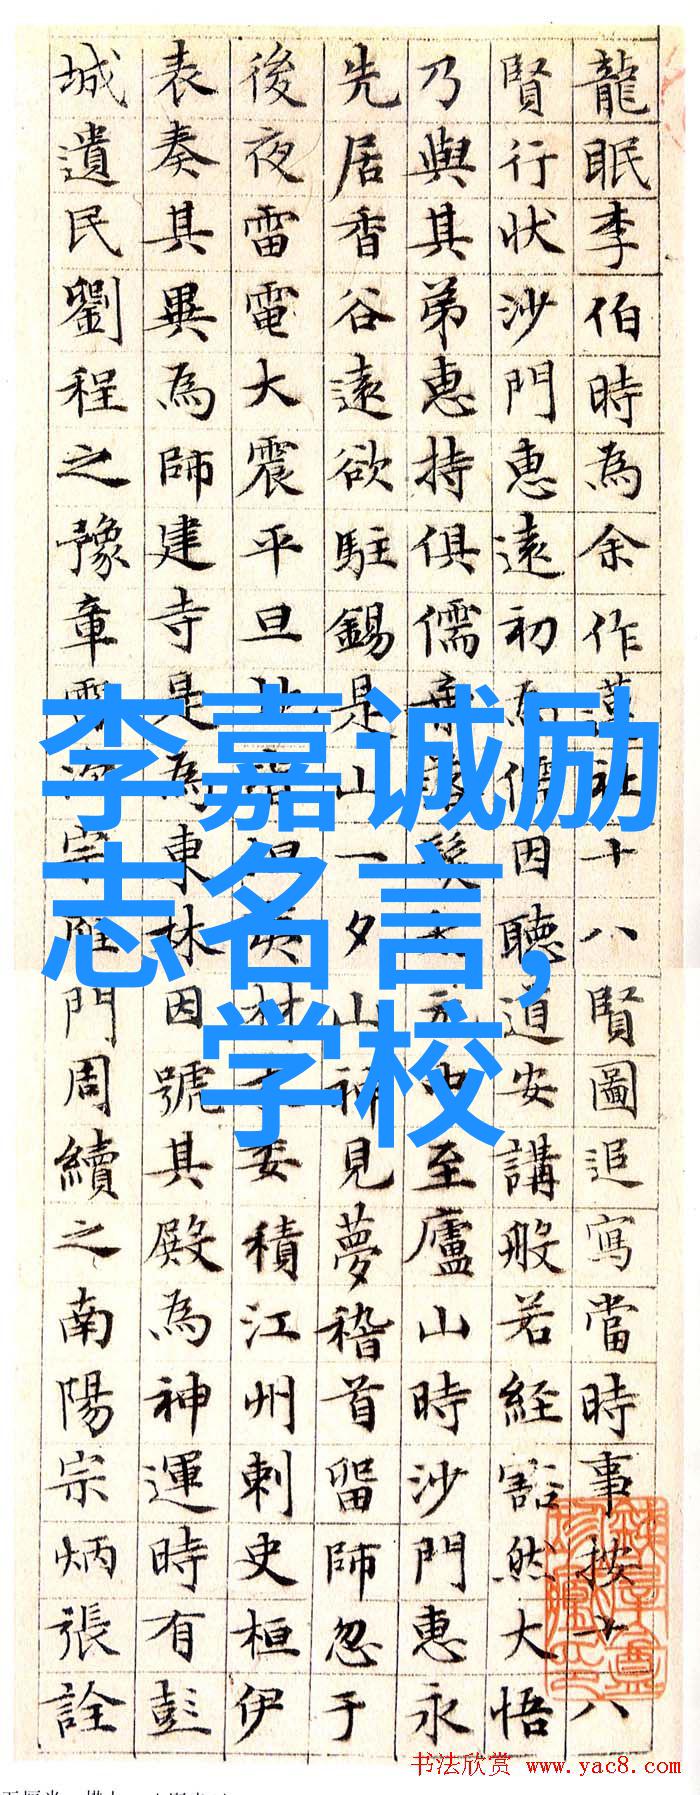 龍眠李伯時為余作蓮社十八賢圖追寫當時事按十八
賢行狀沙門惠遠初為儒因聽道安講般若經豁然大悟
乃與其弟惠持俱儒至廬山時沙門惠永
先居香谷遠欲駐錫是山一夕山神見夢稽首留師忽于
後夜雷電大震平旦地委積江州刺史桓伊
表奏其異為師建寺是為東林因號其殿為神運時有彭
城遺民劉程之豫章雷次宗雁門周續之南陽宗炳張詮
李嘉诚励
志名言,
学校
书法欣赏 www.yac8.com